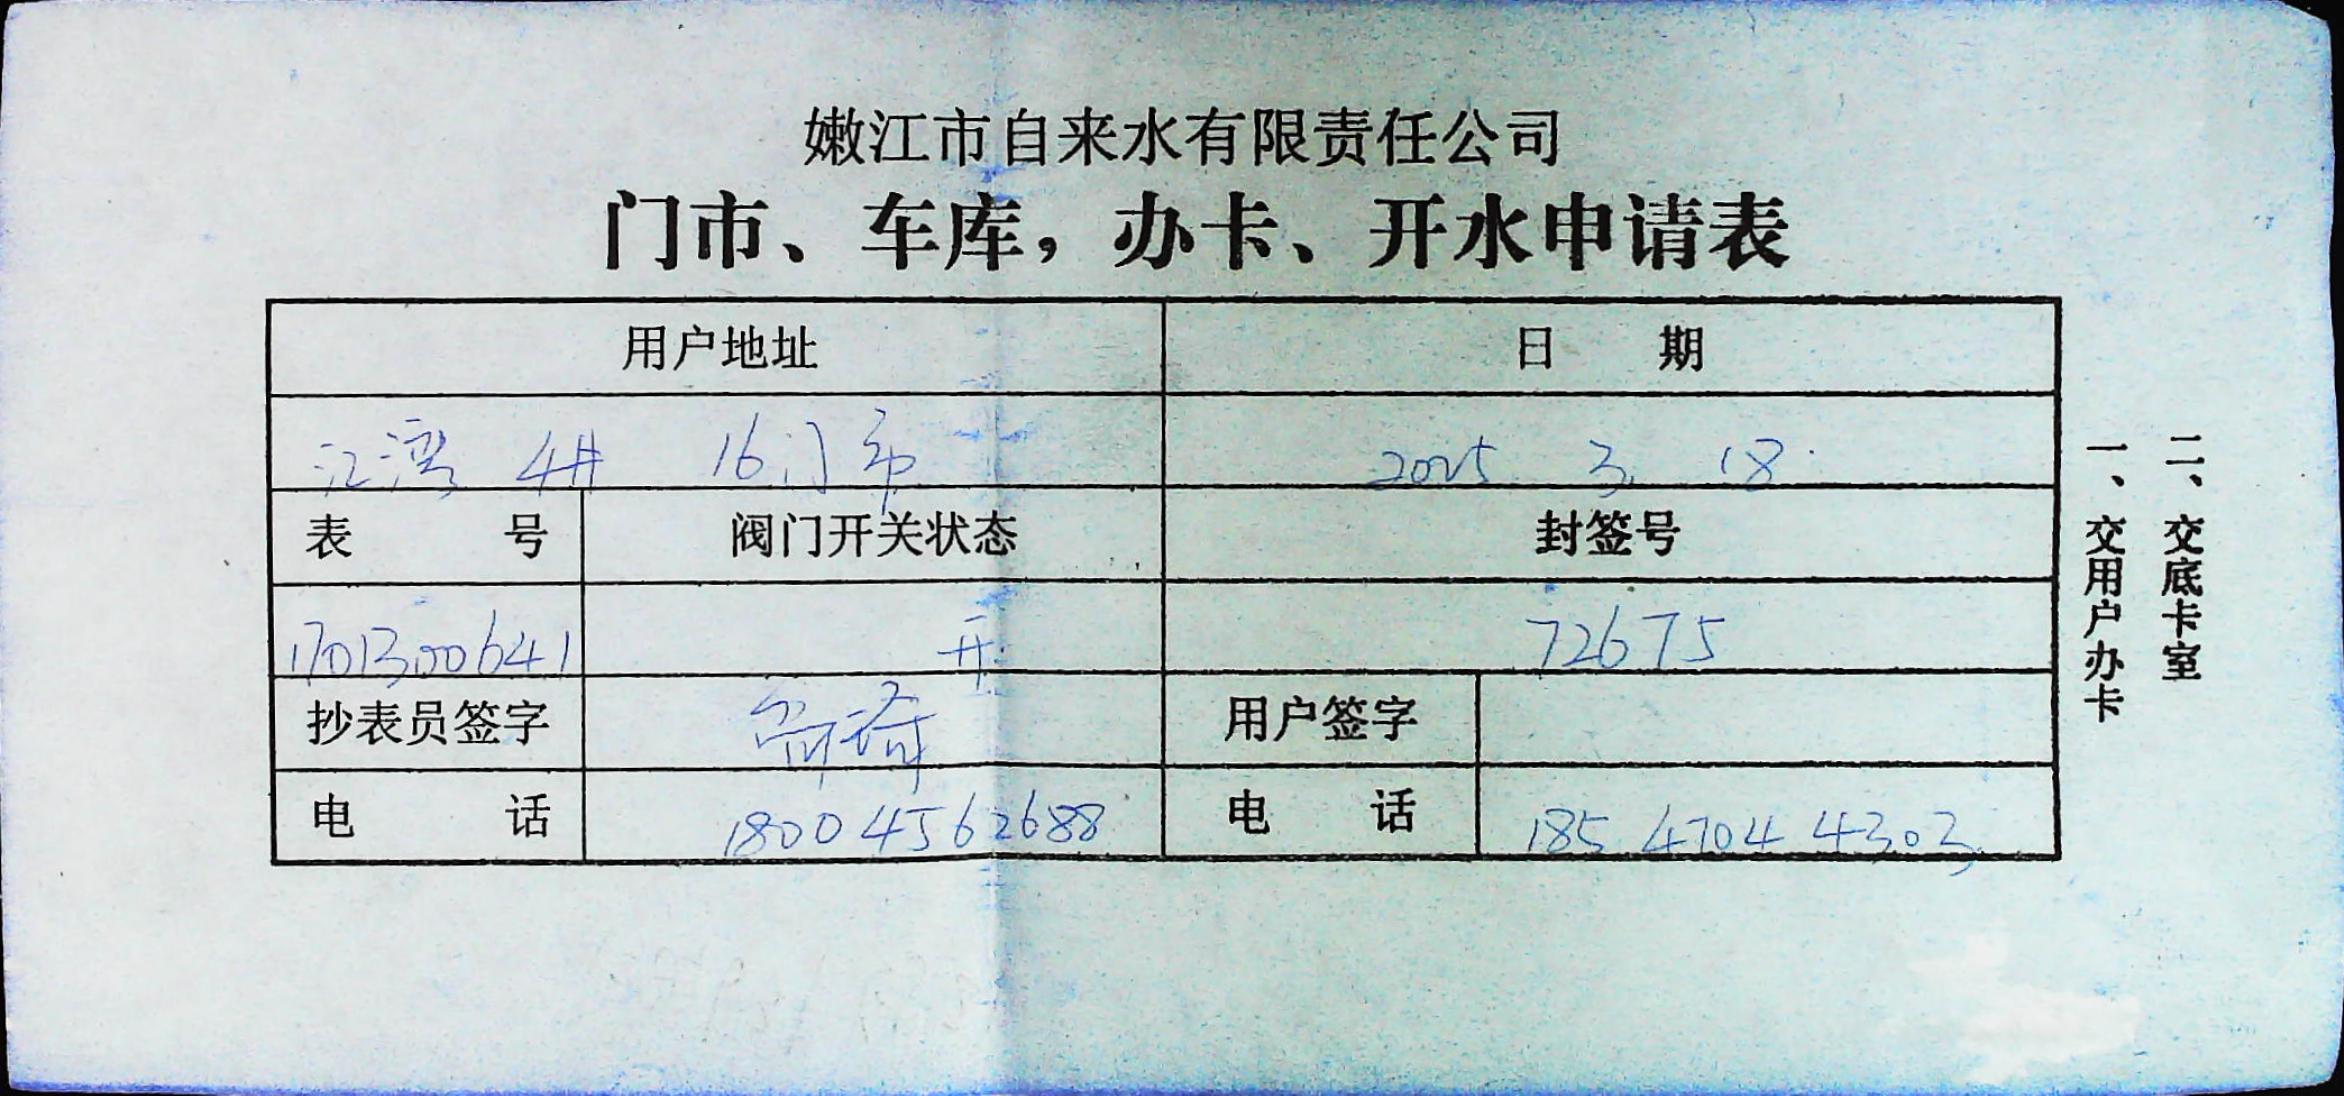 嫩江市自来水有限责任公司
门市、车库，办卡、开水申请表
用户地址 日 期
江湾 4# 16门市 2025 3 18
表 号 阀门开关状态 封签号
1701300641 开 72675
抄表员签字 用户签字
电 话 18004562688 电 话 185 4704 4303
一、交用户办卡
二、交底卡室